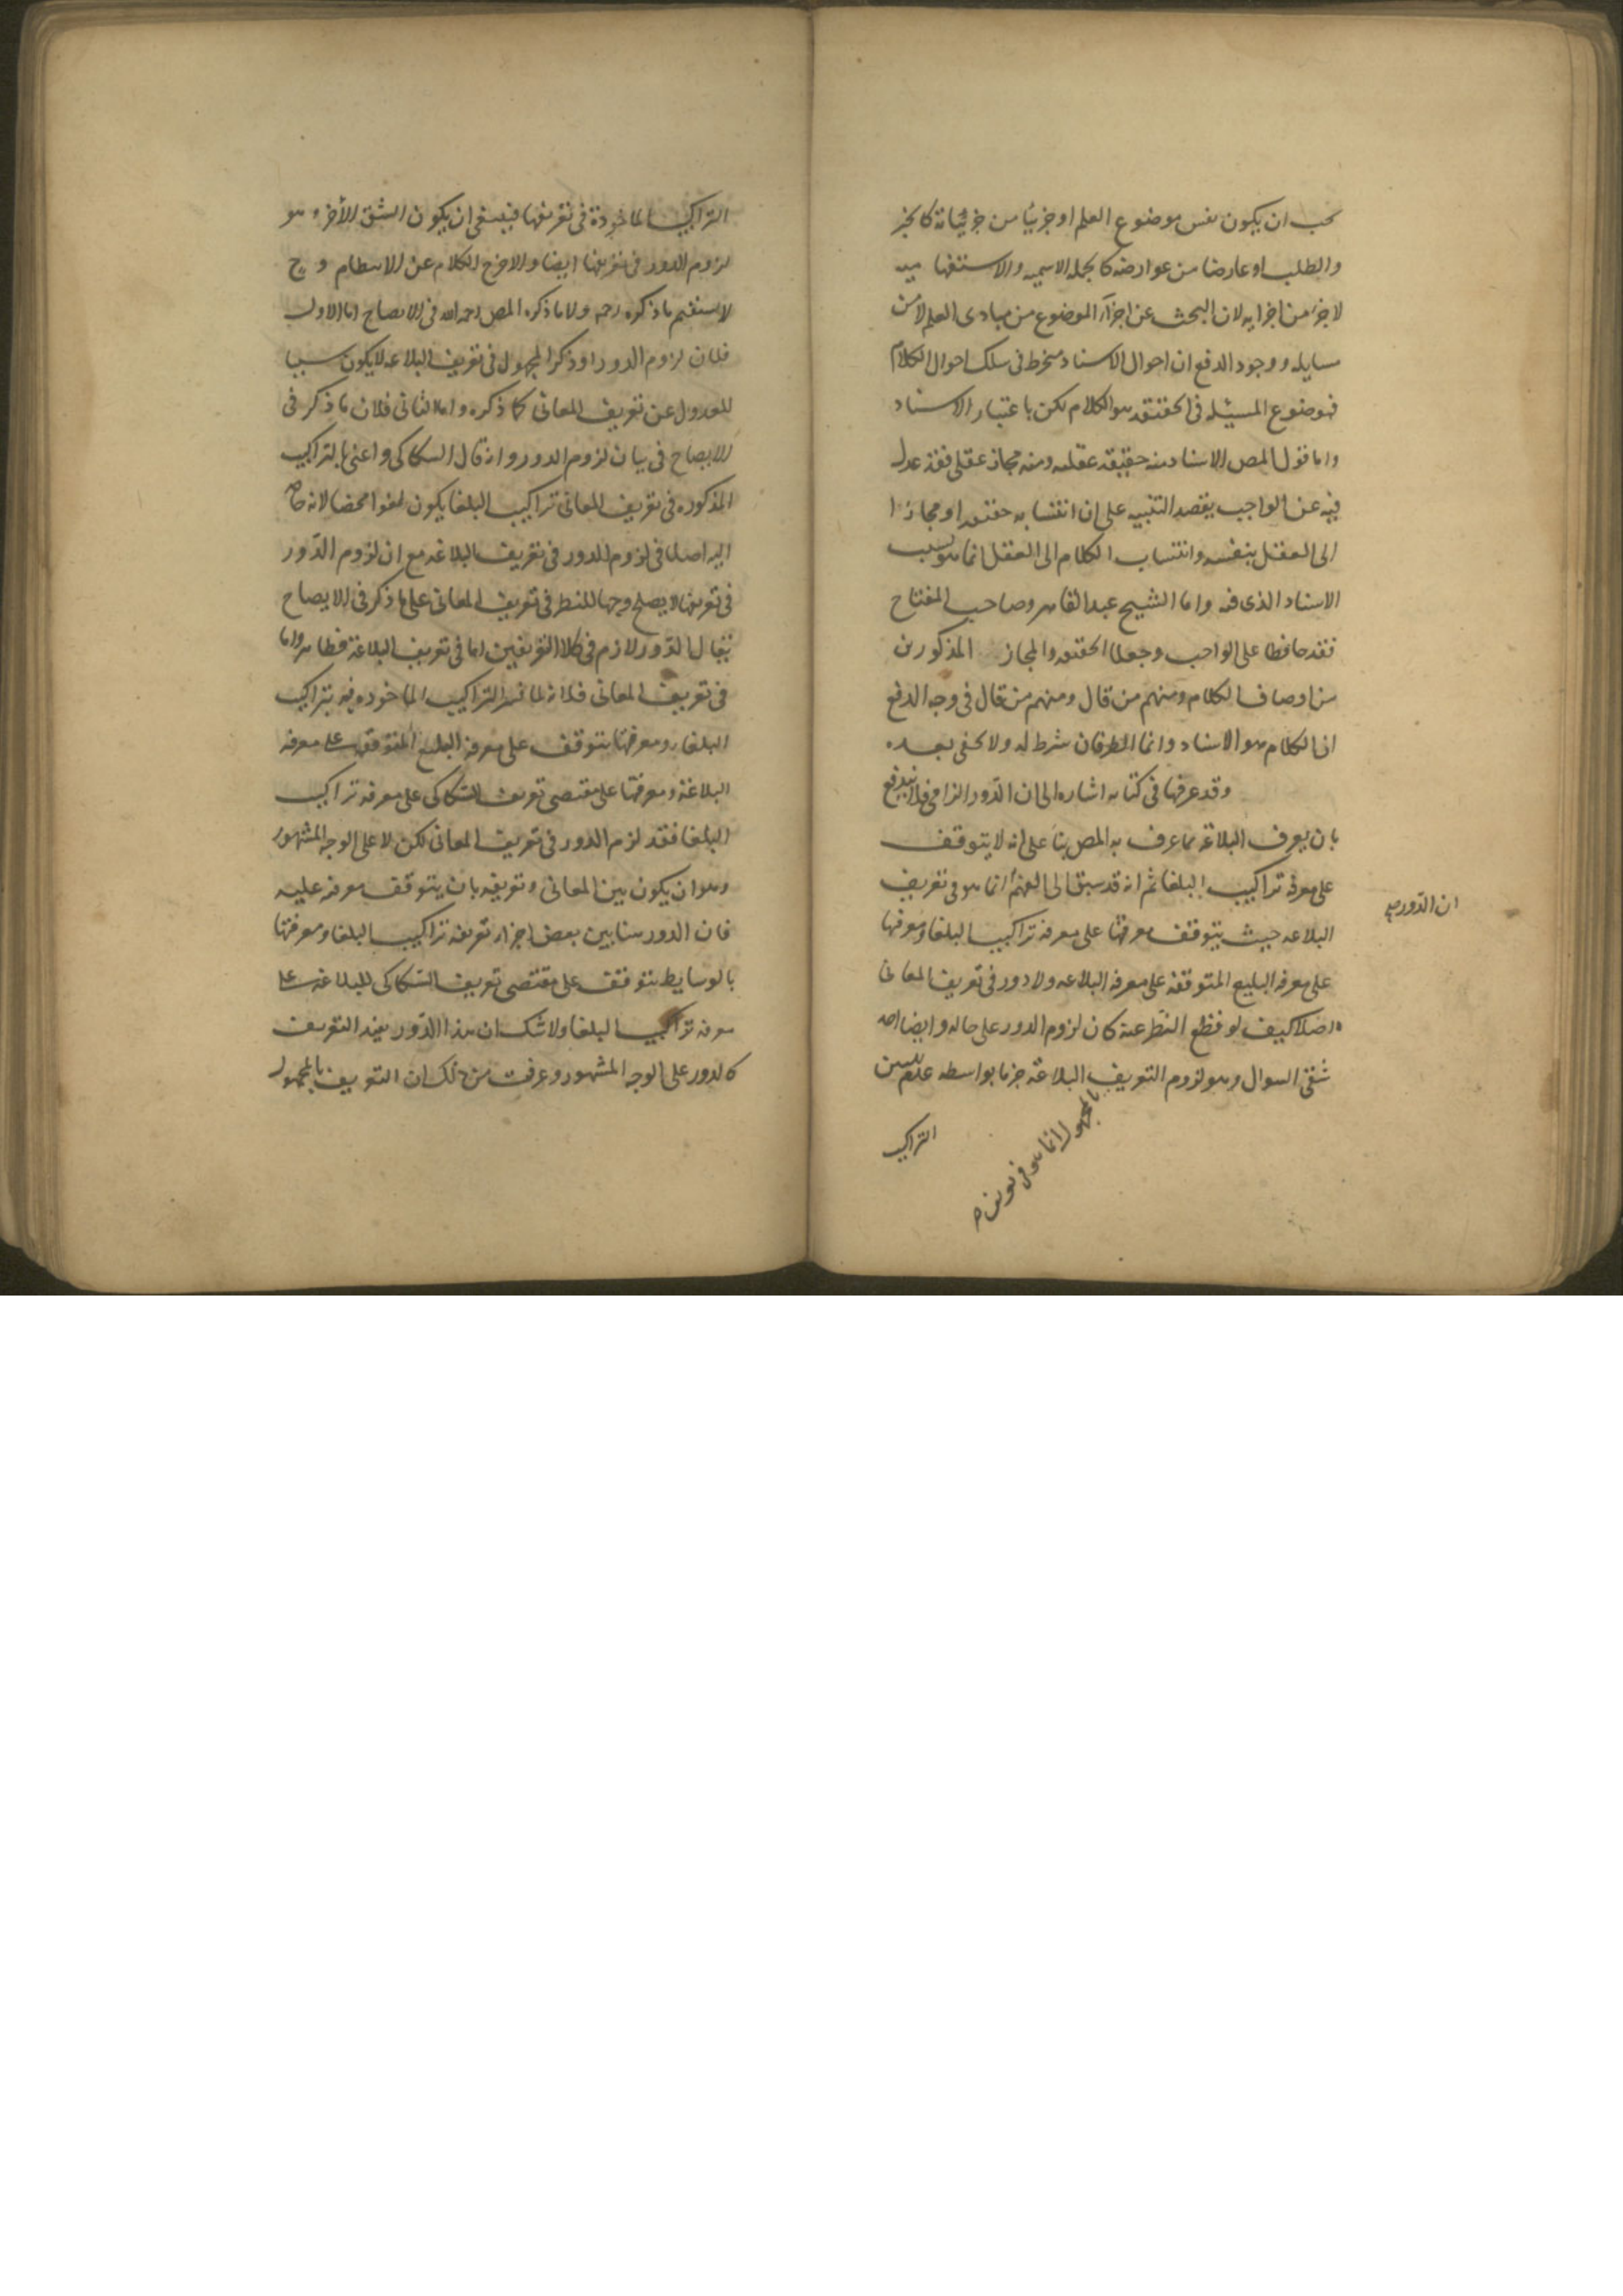 يجب ان يكون نفس موضوع العلم او جزئيا من جزئياته كالخبر
والطلب او عارضا من عوارضه كالجملة الاسمية والاستفهامية
لا جزء من اجزايه لان البحث عن اجزآء الموضوع من مبادى العلم لا من
مسايله ووجود الدفع ان احوال الاسناد منخرط فى سلك احوال الكلام
فموضوع المسئلة فى الحقيقة هو الكلام لكن باعتبار الاسناد
واما قول المص الاسناد منه حقيقة عقلية ومنه مجاز عقلى فقد عدل
فيه عن الواجب بقصد التنبيه على ان انتسابه حقيقة او مجازا
الى العقل بنفسه وانتساب الكلام الى العقل انما هو بسبب
الاسناد الذى فيه واما الشيخ عبد القاهر وصاحب المفتاح
فقد حافظا على الواجب وجعلا الحقيقة والمجاز المذكورين
من اوصاف الكلام ومنهم من قال ومنهم من قال فى وجه الدفع
ان الكلام هو الاسناد وانما الطرفان شرط له ولا يخفى بعده
وقد عرفها فى كتابه اشارة الى ان الدّور الزامى فلا يندفع
بان يعرف البلاغة بما عرف به المص بنآ على انه لا يتوقف
على معرفة تراكيب البلغا ثم انه قد سبق الى الفهم انما هو فى تعريف
ان الدّور
البلاغه حيث يتوقف معرفتها على معرفة تراكيب البلغا ومعرفتها
على معرفة البليغ المتوقفة على معرفة البلاغه ولا دور فى تعريف المعانى
اصلا كيف لو قطع النظر عنه كان لزوم الدور على حاله وايضا احد
شقى السوال وهو لزوم التعريف البلاغة جزما بواسطه عدم تبيين
بالمجهول انما هو فى تعريف
التراكيب
التراكيب الماخوذة فى تعريفها فينبغى ان يكون الشق الأخر وهو
لزوم الدور فى تعريفها ايضا والا خرج الكلام عن الانتظام وح
لا يستقيم ما ذكره رحمه ولا ما ذكره المص رحمه الله فى الايضاح اما الاول
فلان لزوم الدور او ذكر المجهول فى تعريف البلاغه لا يكون سببا
للعدول عن تعريف المعانى كما ذكره واما الثانى فلان ما ذكر فى
الايضاح فى بيان لزوم الدور وانه قال السكاكى واعنى بالتراكيب
المذكوره فى تعريف المعانى تراكيب البلغا يكون لغوا محضا لانه
اليه اصلا فى لزوم الدور فى تعريف البلاغه مع ان لزوم الدّور
فى تعريفها لا يصلح وجها للنظر فى تعريف المعانى على ما ذكر فى الايضاح
يقال الدّور لازم فى كلا التعريفين اما فى تعريف البلاغة فظاهر واما
فى تعريف المعانى فلانه لما فسر التراكيب الماخوذ فيه بتراكيب
البلغا ومعرفتها يتوقف على معرفة البليغ المتوقفة على معرفة
البلاغة ومعرفتها على مقتضى تعريف السّكاكى على معرفة تراكيب
البلغا فقد لزم الدور فى تعريف المعانى لكن لا على الوجه المشهور
وهو ان يكون بين المعانى وتعريفه بان يتوقف معرفته عليه
فان الدور هنا بين بعض اجزاء تعريفه تراكيب البلغا ومعرفتها
بالوسايط يتوقف على مقتضى تعريف السّكاكى للبلاغة على
معرفة تراكيب البلغا ولا شك ان هذا الدّور يفيد التعريف
كالدور على الوجه المشهور وعرفت من ذلك ان التعريف بالمجهول